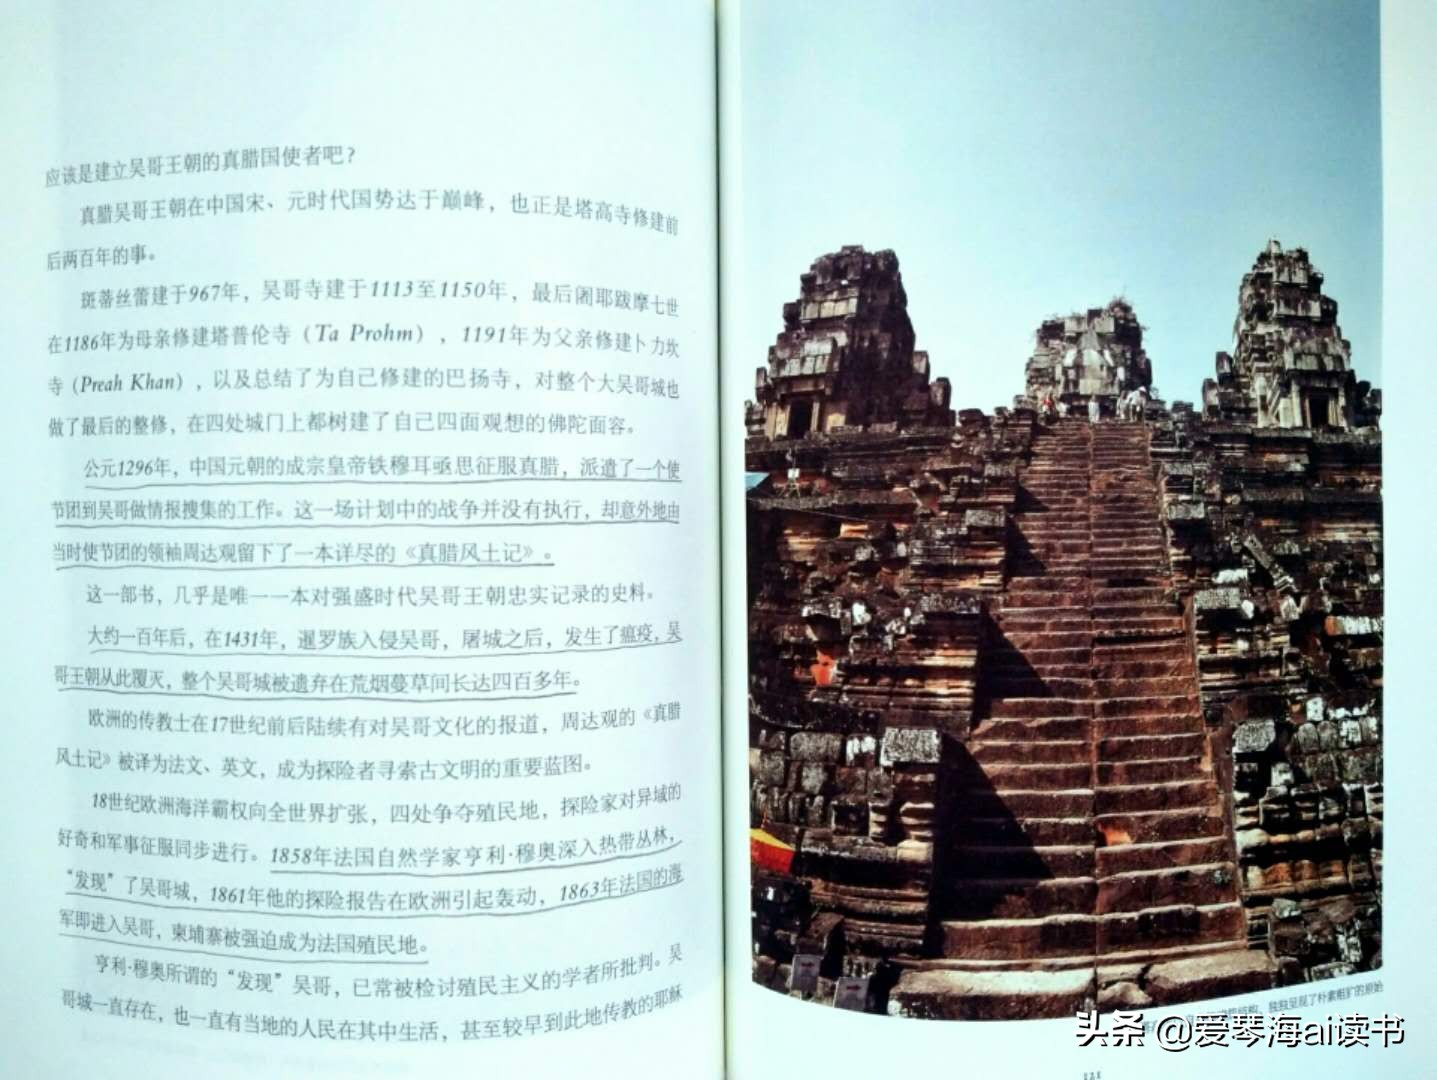 应该是建立吴哥王朝的真腊国使者吧？
真腊吴哥王朝在中国宋、元时代国势达于巅峰，也正是塔高寺修建前
后两百年的事。
斑蒂丝蕾建于967年，吴哥寺建于1113至1150年，最后阇耶跋摩七世
在1186年为母亲修建塔普伦寺（Ta Prohm），1191年为父亲修建卜力坎
寺（Preah Khan），以及总结了为自己修建的巴扬寺，对整个大吴哥城也
做了最后的整修，在四处城门上都树建了自己四面观想的佛陀面容。
公元1296年，中国元朝的成宗皇帝铁穆耳亟思征服真腊，派遣了一个使
节团到吴哥做情报搜集的工作。这一场计划中的战争并没有执行，却意外地由
当时使节团的领袖周达观留下了一本详尽的《真腊风土记》。
这一部书，几乎是唯一一本对强盛时代吴哥王朝忠实记录的史料。
大约一百年后，在1431年，暹罗族入侵吴哥，屠城之后，发生了瘟疫，吴
哥王朝从此覆灭，整个吴哥城被遗弃在荒烟蔓草间长达四百多年。
欧洲的传教士在17世纪前后陆续有对吴哥文化的报道，周达观的《真腊
风土记》被译为法文、英文，成为探险者寻索古文明的重要蓝图。
18世纪欧洲海洋霸权向全世界扩张，四处争夺殖民地，探险家对异域的
好奇和军事征服同步进行。1858年法国自然学家亨利·穆奥深入热带丛林，
“发现”了吴哥城，1861年他的探险报告在欧洲引起轰动，1863年法国的海
军即进入吴哥，柬埔寨被强迫成为法国殖民地。
亨利·穆奥所谓的“发现”吴哥，已常被检讨殖民主义的学者所批判。吴
哥城一直存在，也一直有当地的人民在其中生活，甚至较早到此地传教的耶稣
独独呈现了朴素粗犷的原始
121
头条 @爱琴海ai读书